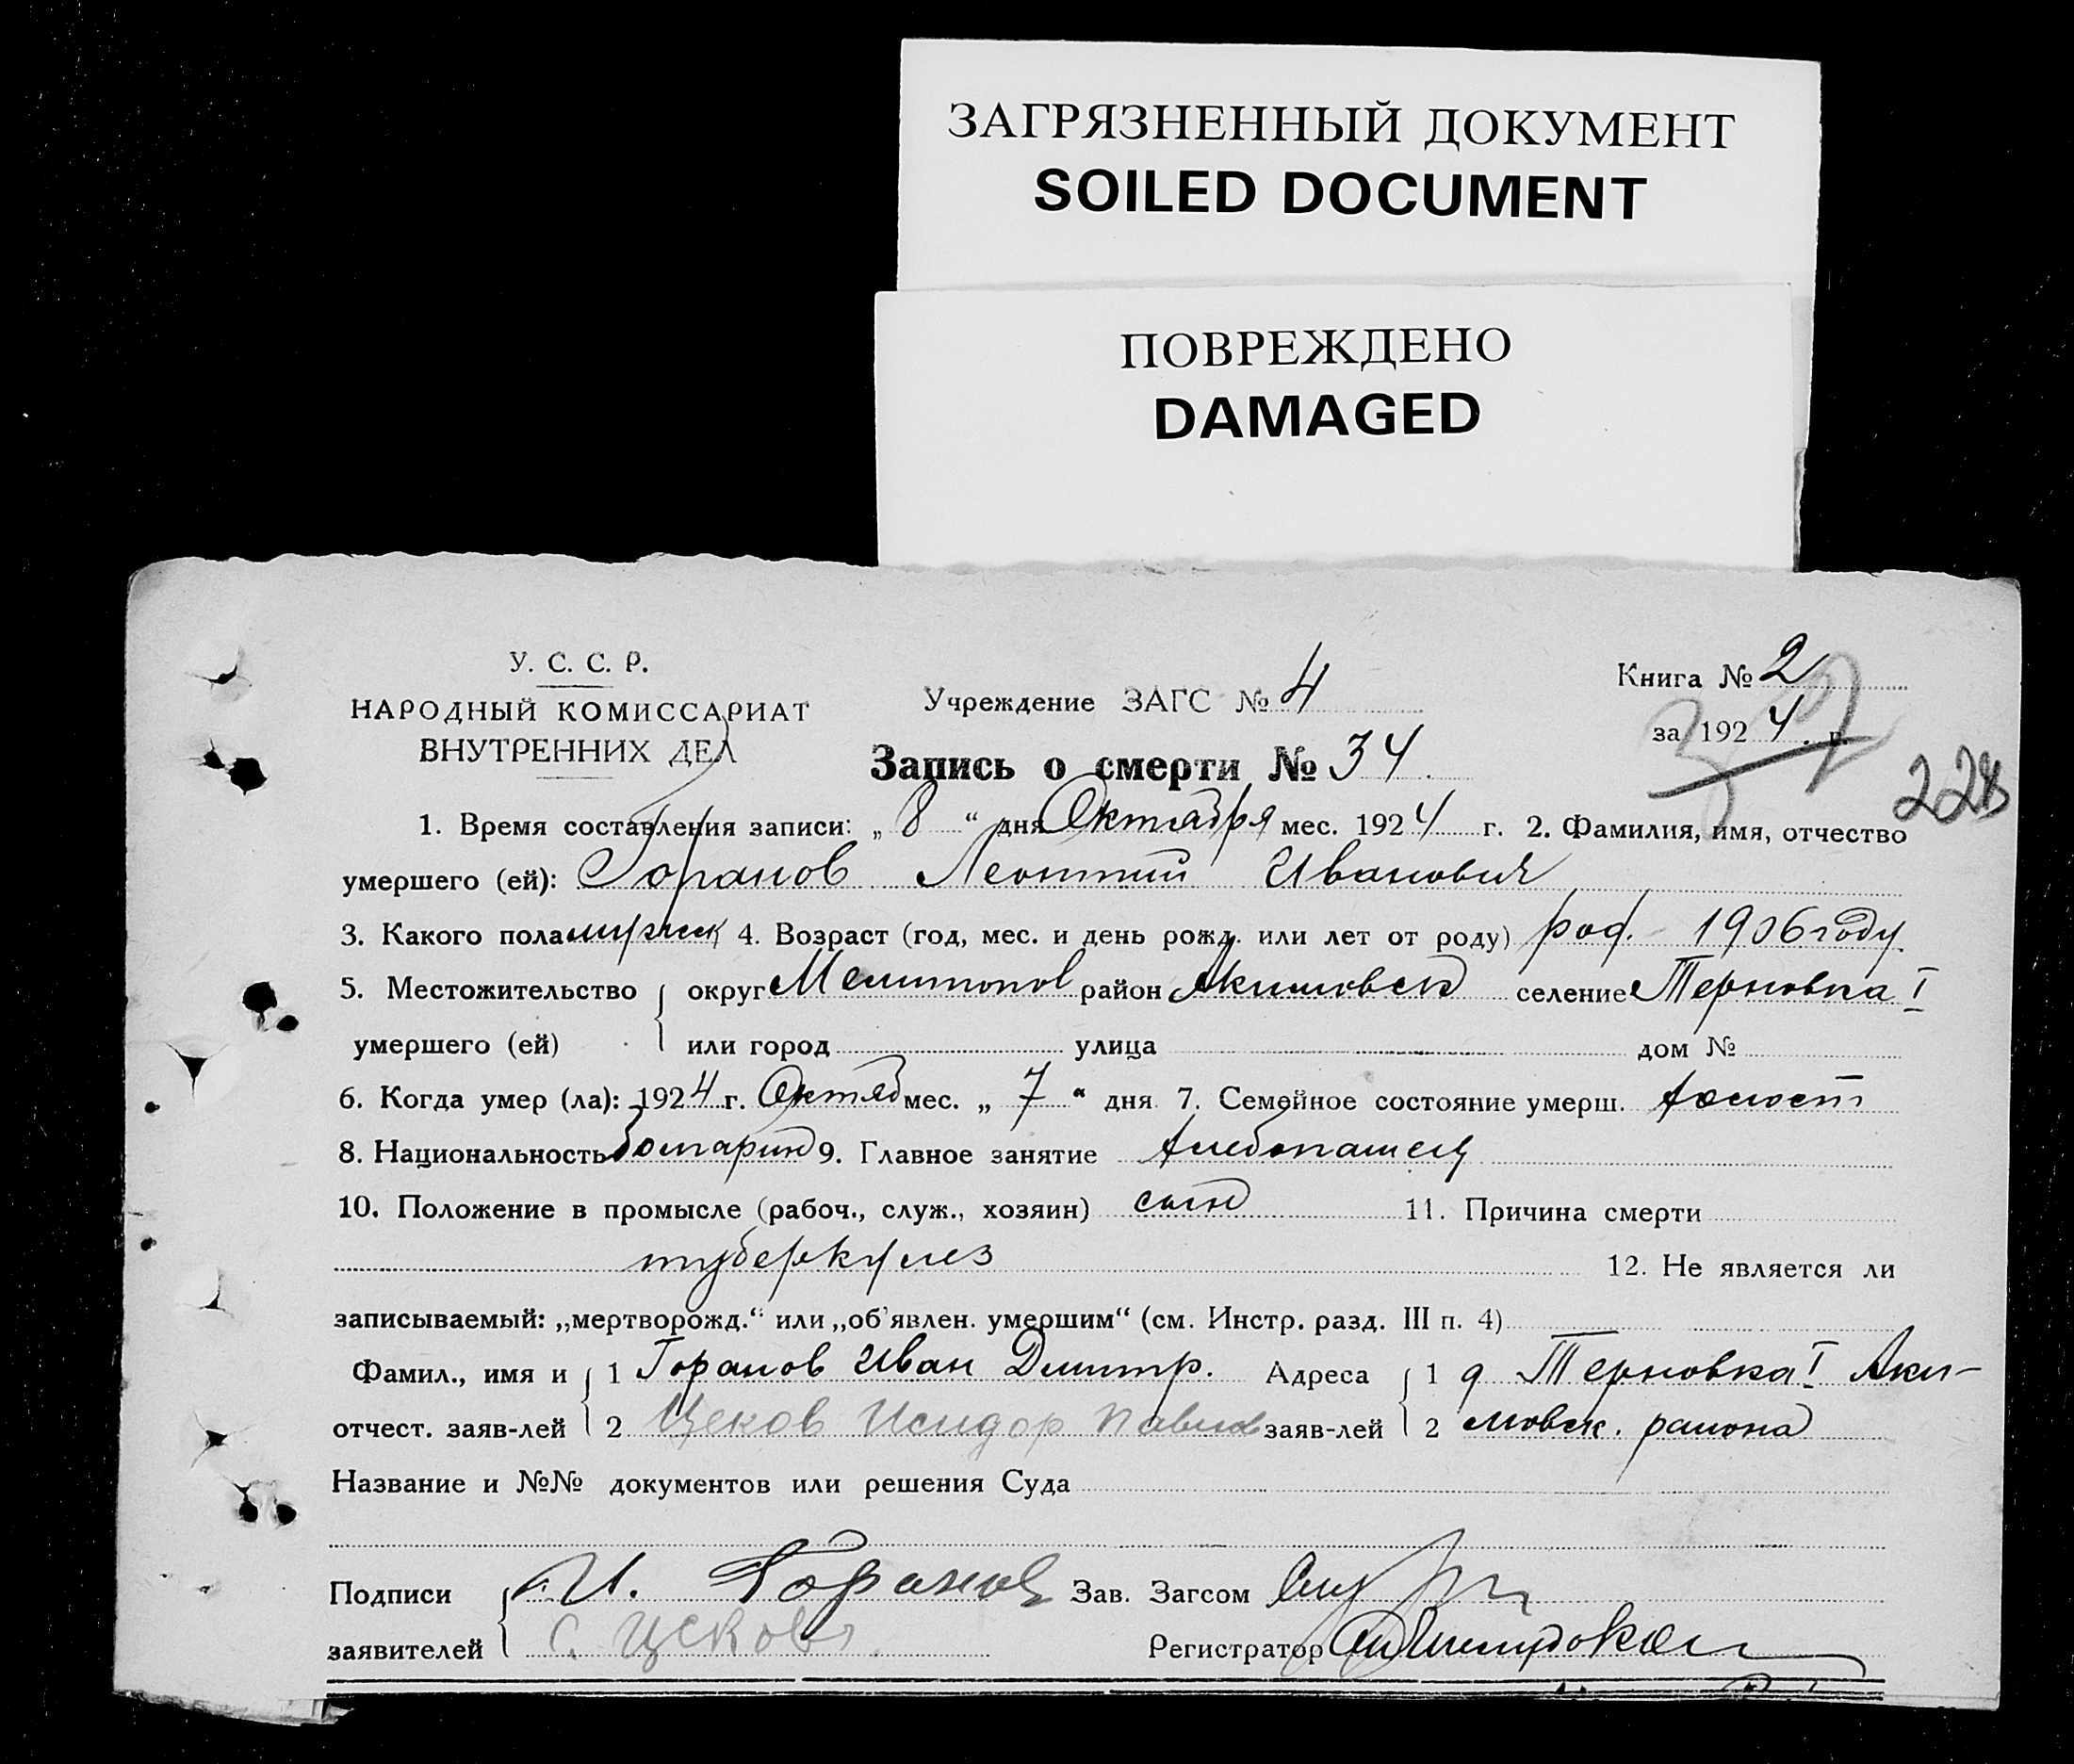 ЗАГРЯЗНЕННЫЙ ДОКУМЕНТ
SOILED DOCUMENT
ПОВРЕЖДЕНО
DAMAGED
У. С. С. Р.
НАРОДНЫЙ КОМИССАРИАТ
ВНУТРЕННИХ ДЕЛ
Учреждение ЗАГС № 4
Книга № 2
за 1924 г.
Запись о смерти № 34
228
1. Время составления записи: „ 8 “ дня Октября мес. 1924 г. 2. Фамилия, имя, отчество
умершего (ей): Горанов Леонтий Иванович
3. Какого пола мужск 4. Возраст (год, мес. и день рожд. или лет от роду) род. 1906 году
5. Местожительство округ Мелитопов район Акимовск селение Терновка I
умершего (ей) или город улица дом №
6. Когда умер (ла): 1924 г. Октяб мес. „ 7 “ дня 7. Семейное состояние умерш. холост
8. Национальность болгарин 9. Главное занятие хлебопашец
10. Положение в промысле (рабоч., служ., хозяин) сын 11. Причина смерти
туберкулез 12. Не является ли
записываемый: „мертворожд.“ или „об'явлен. умершим“ (см. Инстр. разд. III п. 4)
Фамил., имя и 1 Горанов Иван Дмитр. Адреса 1 д Терновка I Аки-
отчест. заяв-лей 2 Цеков Исидор Павлов заяв-лей 2 мовск. района
Название и №№ документов или решения Суда
Подписи И. Горанов Зав. Загсом
заявителей С. Цеков Регистратор